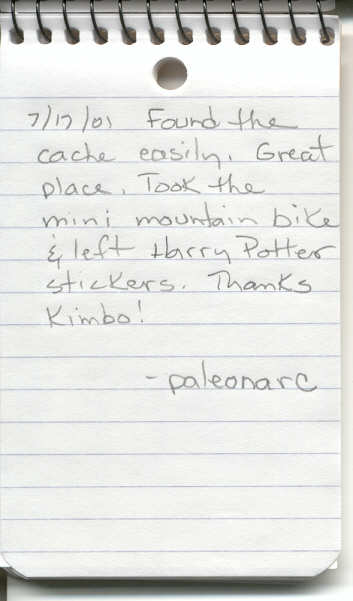 7/17/01 Found the
cache easily. Great
place. Took the
mini mountain bike
& left Harry Potter
stickers. Thanks
Kimbo!
- paleonarc